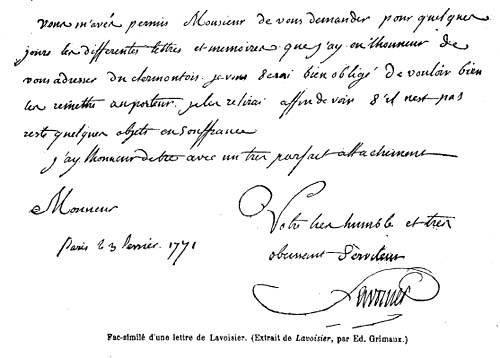 vous m'avés permis Monsieur de vous demander pour quelques
jours les differentes lettres et memoires que j'ay eu l'honneur de
vous adresser du clermontois. je vous serai bien obligé de vouloir bien
les remettre au porteur. je les relirai affin de voir s'il n'est pas
resté quelques objets en souffrance
j'ay l'honneur detre avec un tres parfait attachement
Monsieur
Votre tres humble et tres
obeissant Serviteur
Paris 23 fevrier. 1771
Lavoisier
Fac-similé d'une lettre de Lavoisier. (Extrait de Lavoisier, par Ed. Grimaux.)